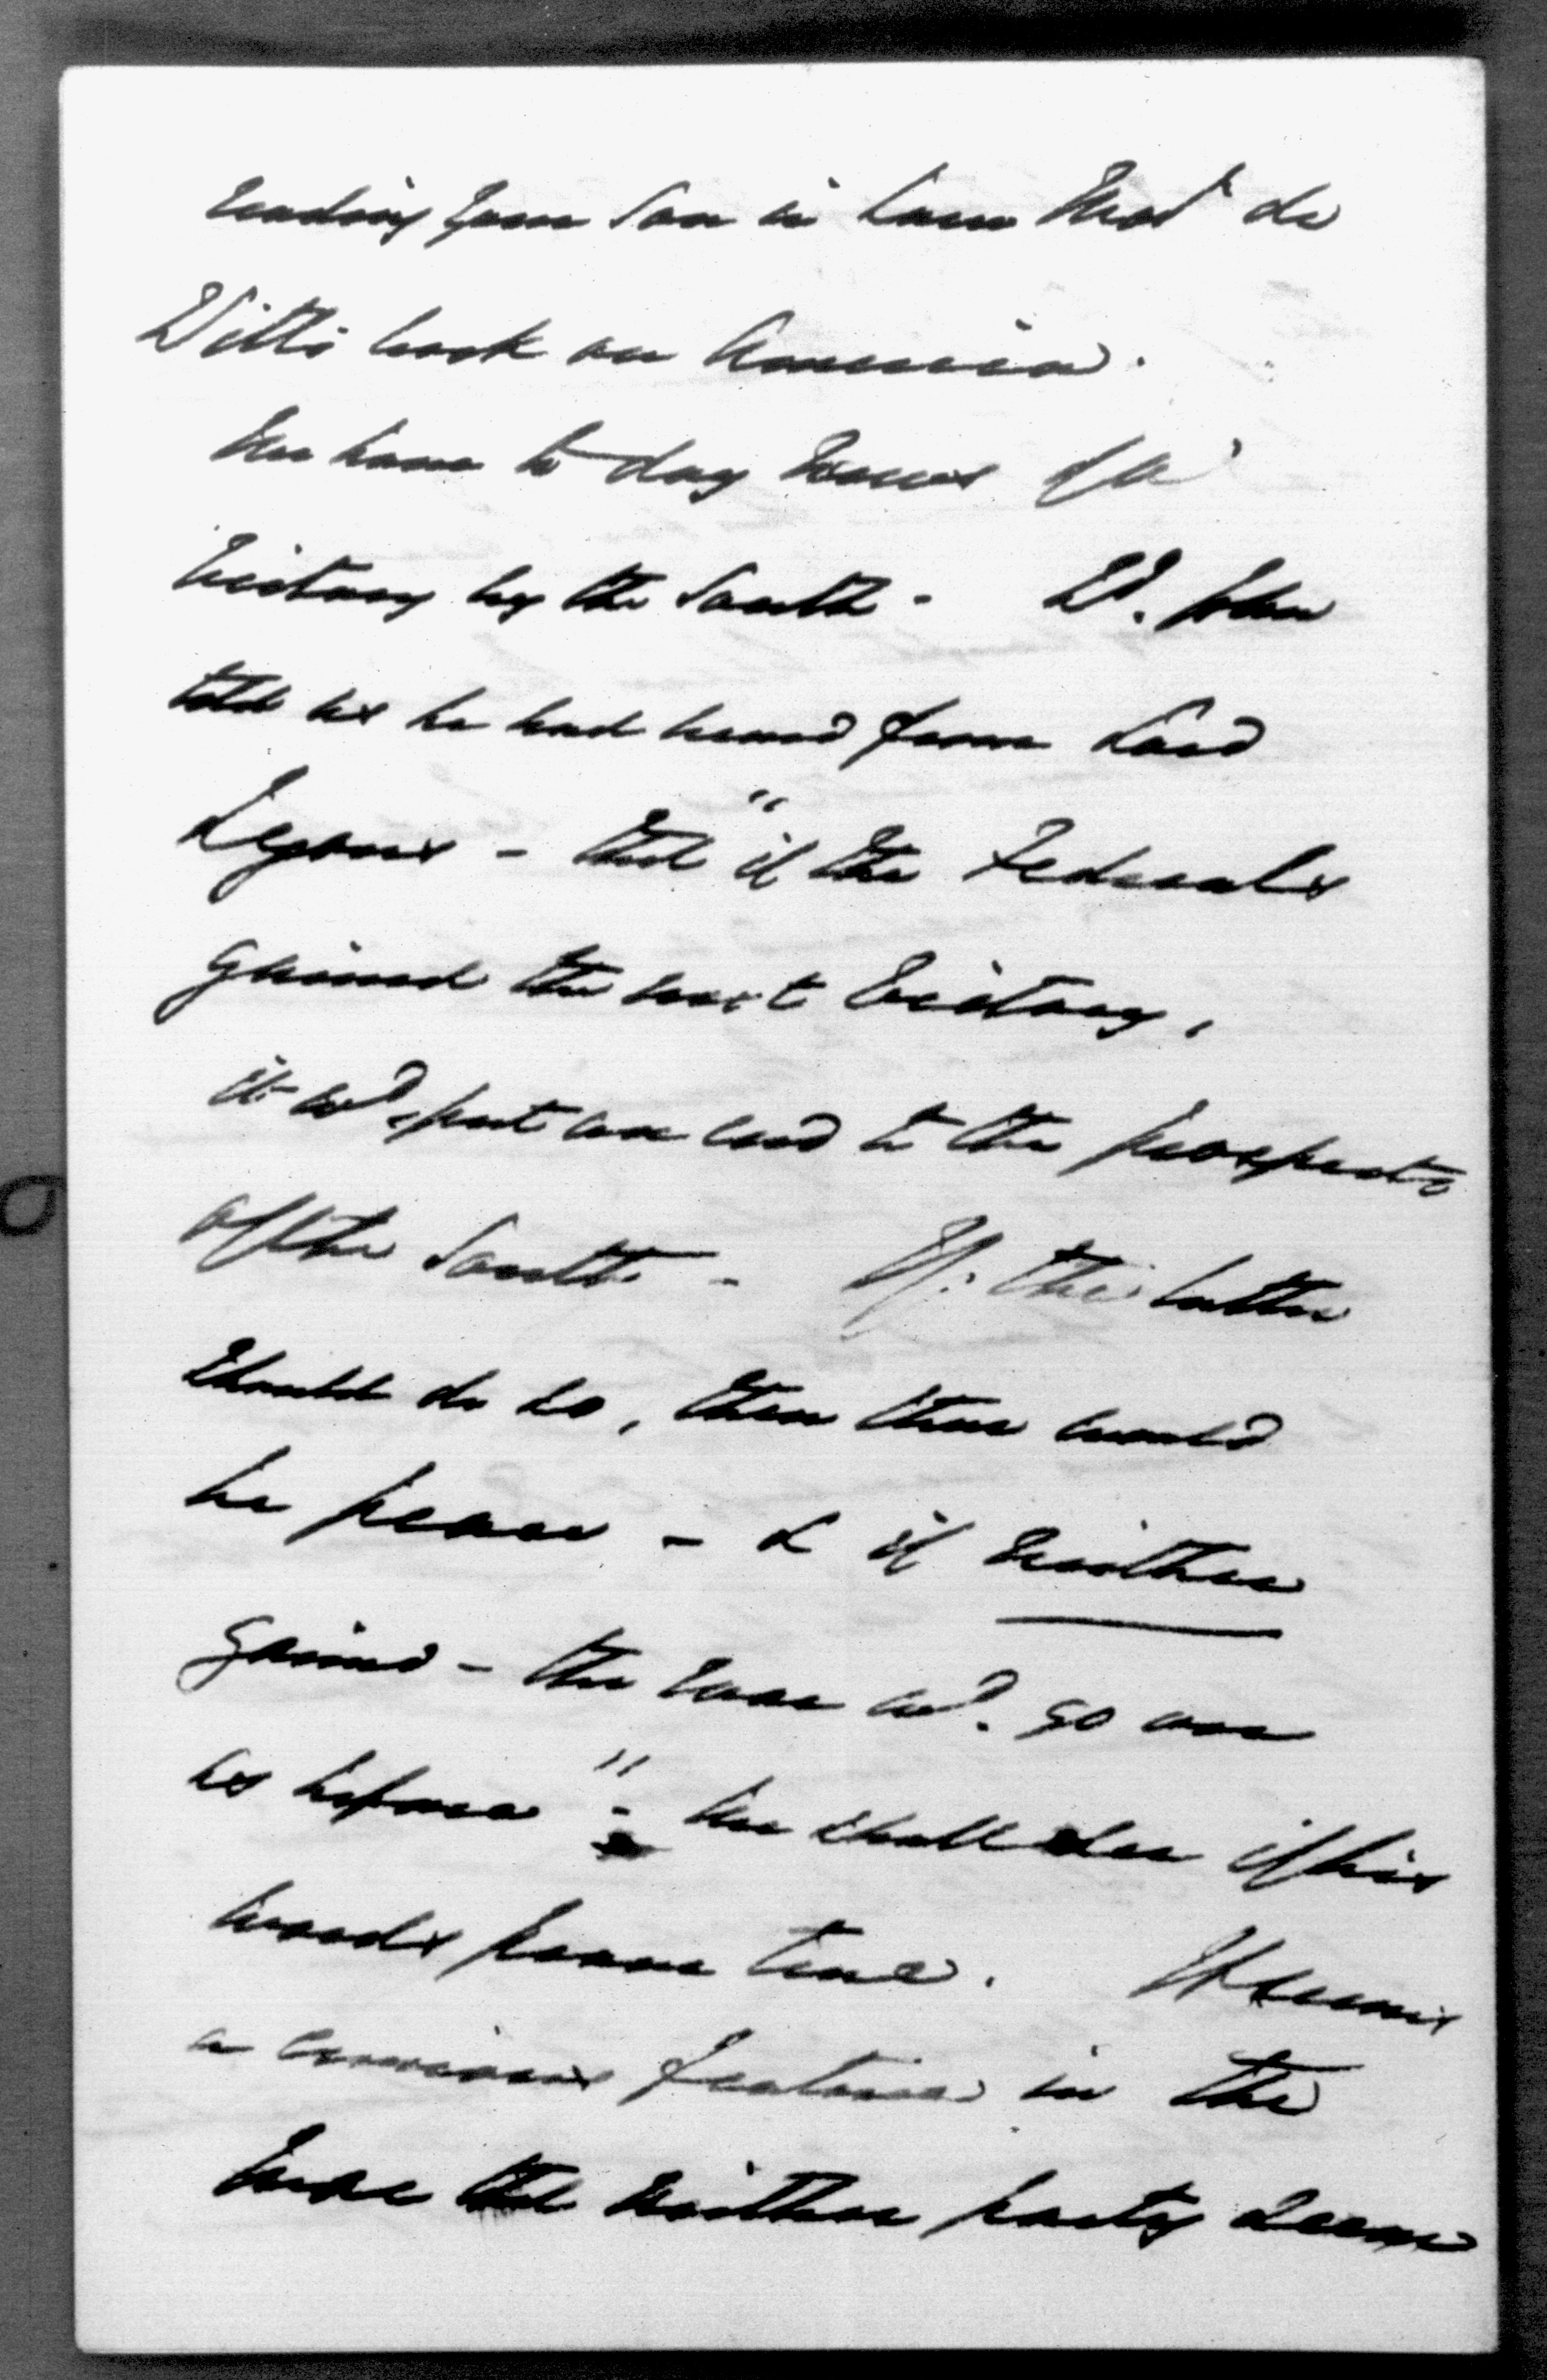 reading your son in law Mod de
Witt's book on America.
We have to day news of a
victory by the South - Ld. John
told us he had heard from Lord
Lyons - that "if the Federals
gained the next victory,
it wd. put an end to the prospects
of the South - If the latter
should do so, then there would
be peace - & if neither
gained - the war wd. go on
as before" - We shall see if his
words prove true. It seems
a curious feature in the
war that neither party seems